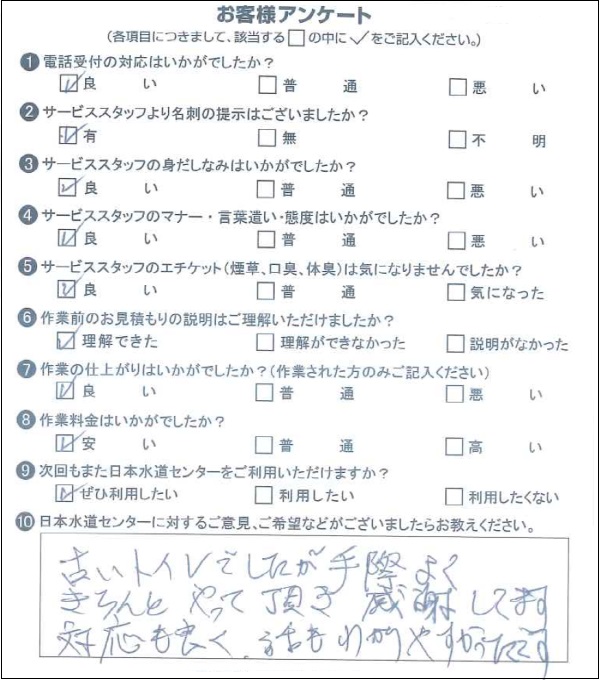 お客様アンケート
(各項目につきまして、該当する□の中に✓をご記入ください。)
❶電話受付の対応はいかがでしたか?
☑良い □普通 □悪い
❷サービススタッフより名刺の提示はございましたか?
☑有 □無 □不明
❸サービススタッフの身だしなみはいかがでしたか?
☑良い □普通 □悪い
❹サービススタッフのマナー・言葉遣い・態度はいかがでしたか?
☑良い □普通 □悪い
❺サービススタッフのエチケット(煙草、口臭、体臭)は気になりませんでしたか?
☑良い □普通 □気になった
❻作業前のお見積もりの説明はご理解いただけましたか?
☑理解できた □理解ができなかった □説明がなかった
❼作業の仕上がりはいかがでしたか?(作業された方のみご記入ください)
☑良い □普通 □悪い
❽作業料金はいかがでしたか?
☑安い □普通 □高い
❾次回もまた日本水道センターをご利用いただけますか?
☑ぜひ利用したい □利用したい □利用したくない
❿日本水道センターに対するご意見、ご希望などがございましたらお教えください。
古いトイレでしたが手際よく
きちんとやって頂き感謝してます
対応も良く、話もわかりやすかったです